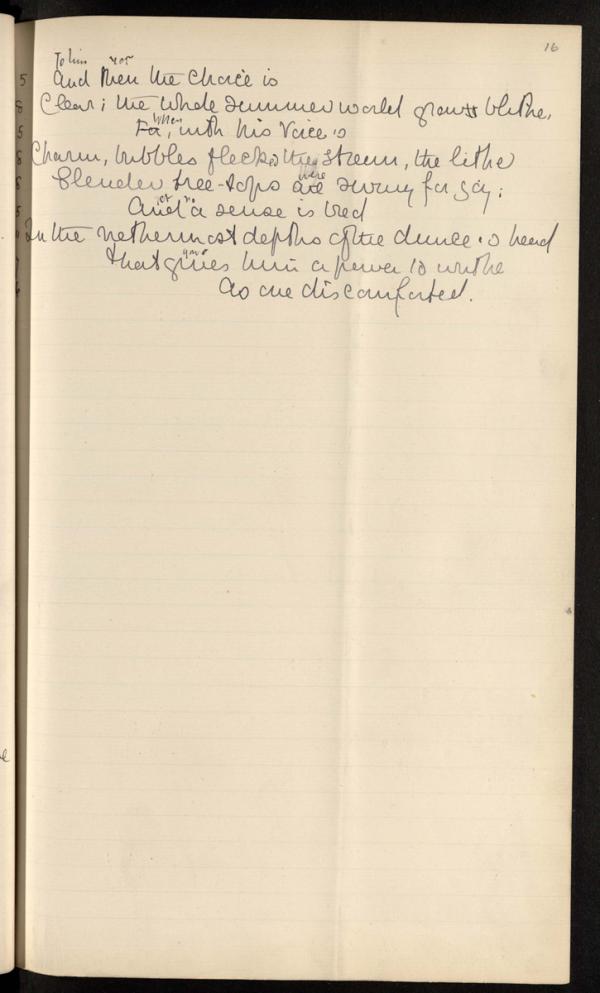 16
To him not
5 And then the choice is
8 Clear; the whole summer world grows blithe,
when
5 For, with his voice's
8 Charm, bubbles fleck the stream, the lithe
were
8 Slender tree-tops are swung for joy;
5 And a sense is bred
In the nethermost depths of the dunce's head
gave
That gives him a power to writhe
As one discomforted.